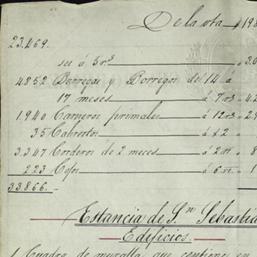 De la vta $ 19
23.469.
se á 5 rs
4852 Borregas y Borregos de 14 á
17 meses á 7 rs 42
1940 Carneros primales á 12 rs 29
35 Cabrestos á $ 2
3.347 Corderos de 2 meses á 2 rs 8
223 Cojos á 6 rs 1
33.866.
Estancia de Sn Sebastia
Edificios.
1 Cuadro de muralla que contiene en